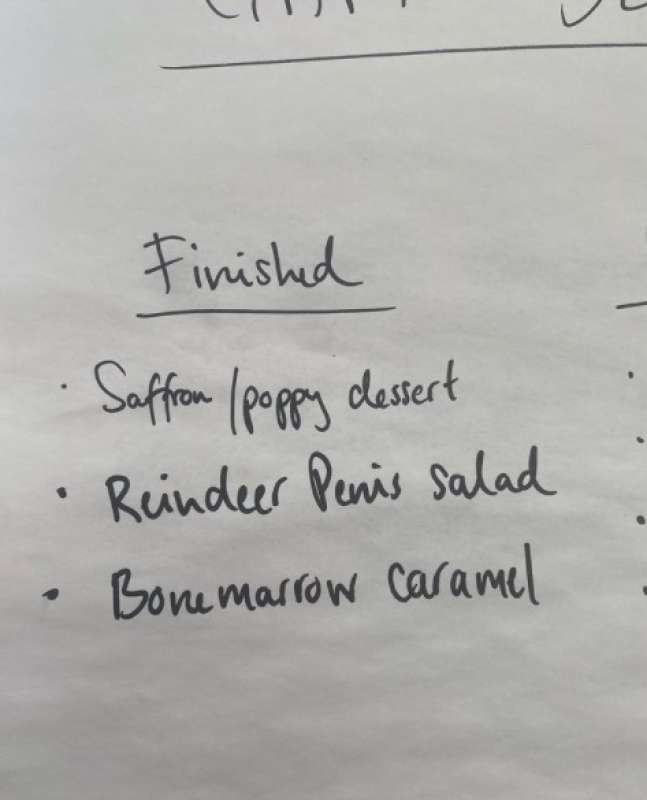 Finished
· Saffron / poppy dessert
· Reindeer Penis salad
· Bonemarrow caramel